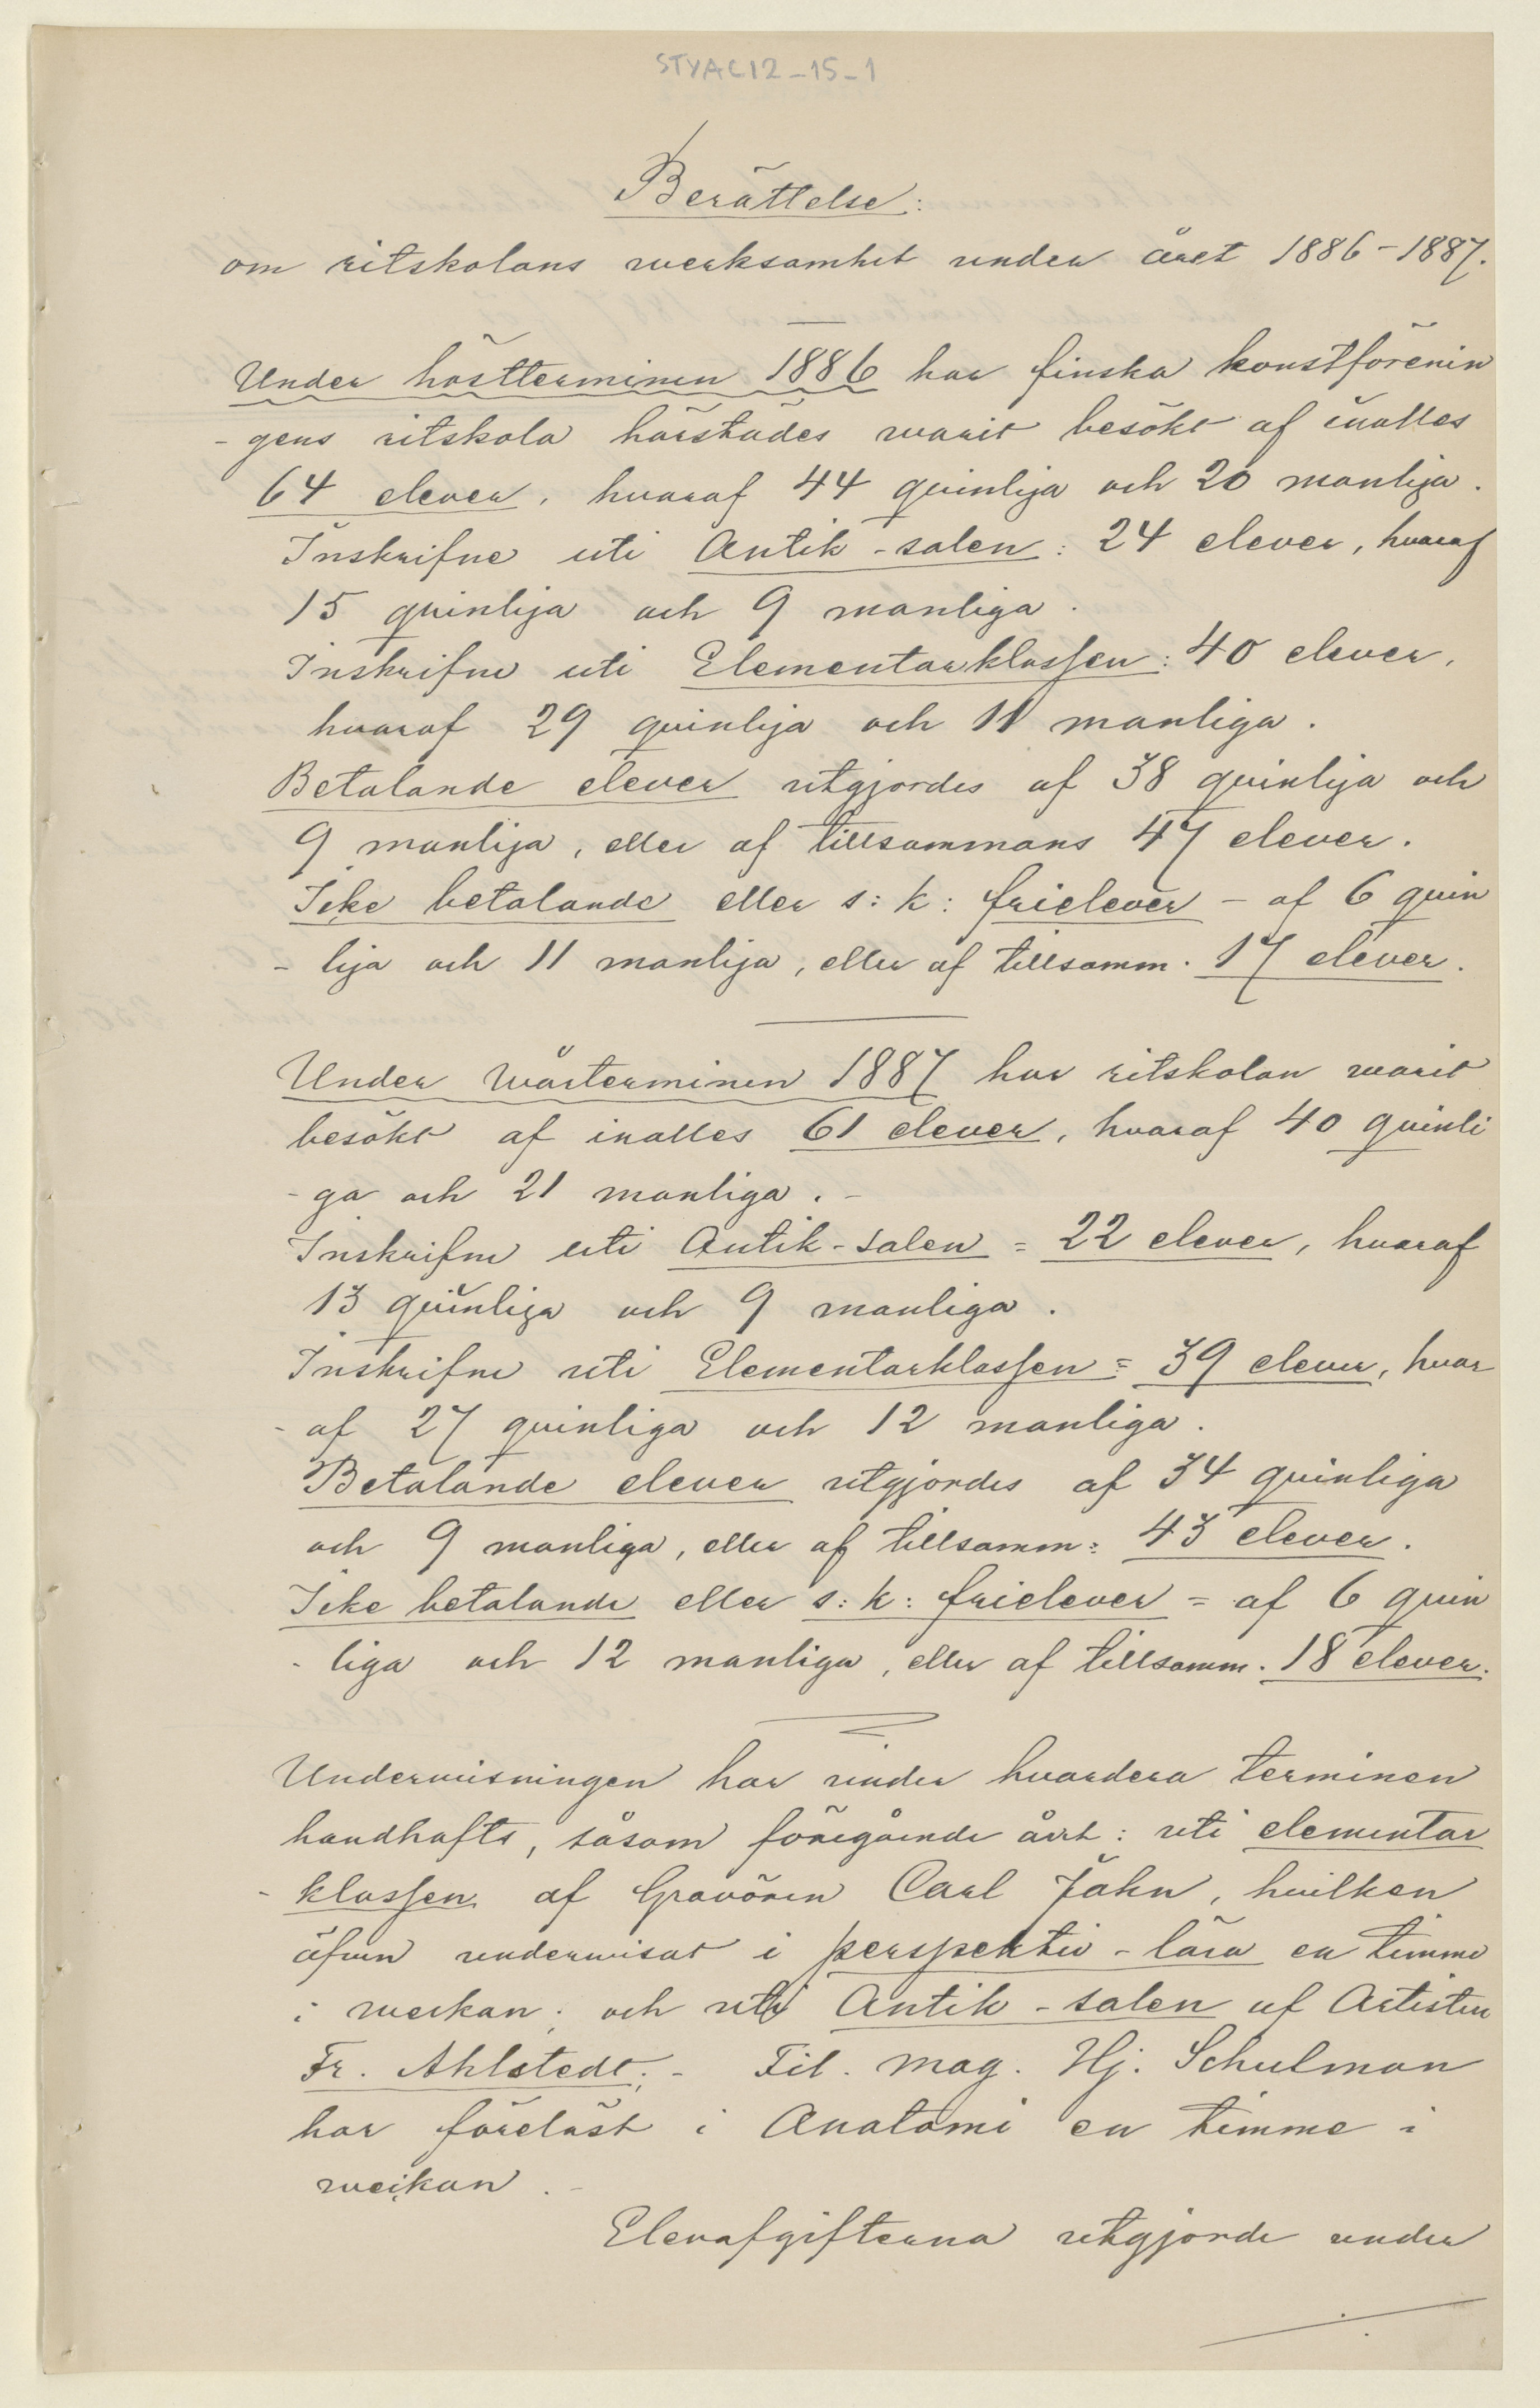 STYAC12-15-1
Berättelse:
om ritskolans werksamhet under året 1886-1887.
Under höstterminen 1886 har finska konstförenin
- gens ritskola härstädes warit besökt af inalles
64 elever, hvaraf 44 qvinliga och 20 manliga.
Inskrifne uti Antik-salen: 24 elever, hvaraf
15 qvinliga och 9 manliga.
Inskrifne uti Elementarklassen: 40 elever,
hvaraf 29 qvinliga och 11 manliga.
Betalande elever utgjordes af 38 qvinliga och
9 manliga, eller af tillsammans 47 elever.
Icke betalande eller s: k: frielever - af 6 qvin
- liga och 11 manliga, eller af tillsamm. 17 elever.
Under Wårterminen 1887 har ritskolan warit
besökt af inalles 61 elever, hvaraf 40 qvinli
- ga och 21 manliga. -
Inskrifne uti Antik-salen = 22 elever, hvaraf
13 qvinliga och 9 manliga.
Inskrifne uti Elementarklassen = 39 elever, hvar
- af 27 qvinliga och 12 manliga.
Betalande elever utgjordes af 34 qvinliga
och 9 manliga, eller af tillsamm: 43 elever.
Icke betalande eller s: k: frielever = af 6 qvin
- liga och 12 manliga, eller af tillsamm. 18 elever.
Underwisningen har under hvardera terminen
handhafts, såsom föregående året: uti elementar
- klassen af Gravören Carl Jahn, hvilken
äfven underwisat i perspektiv-lära en timme
i weckan; och uti Antik-salen af Artisten
Fr. Ahlstedt; - Fil. mag. Hj. Schulman
har föreläst i Anatomi en timme i
weckan. -
Elevafgifterna utgjorde under